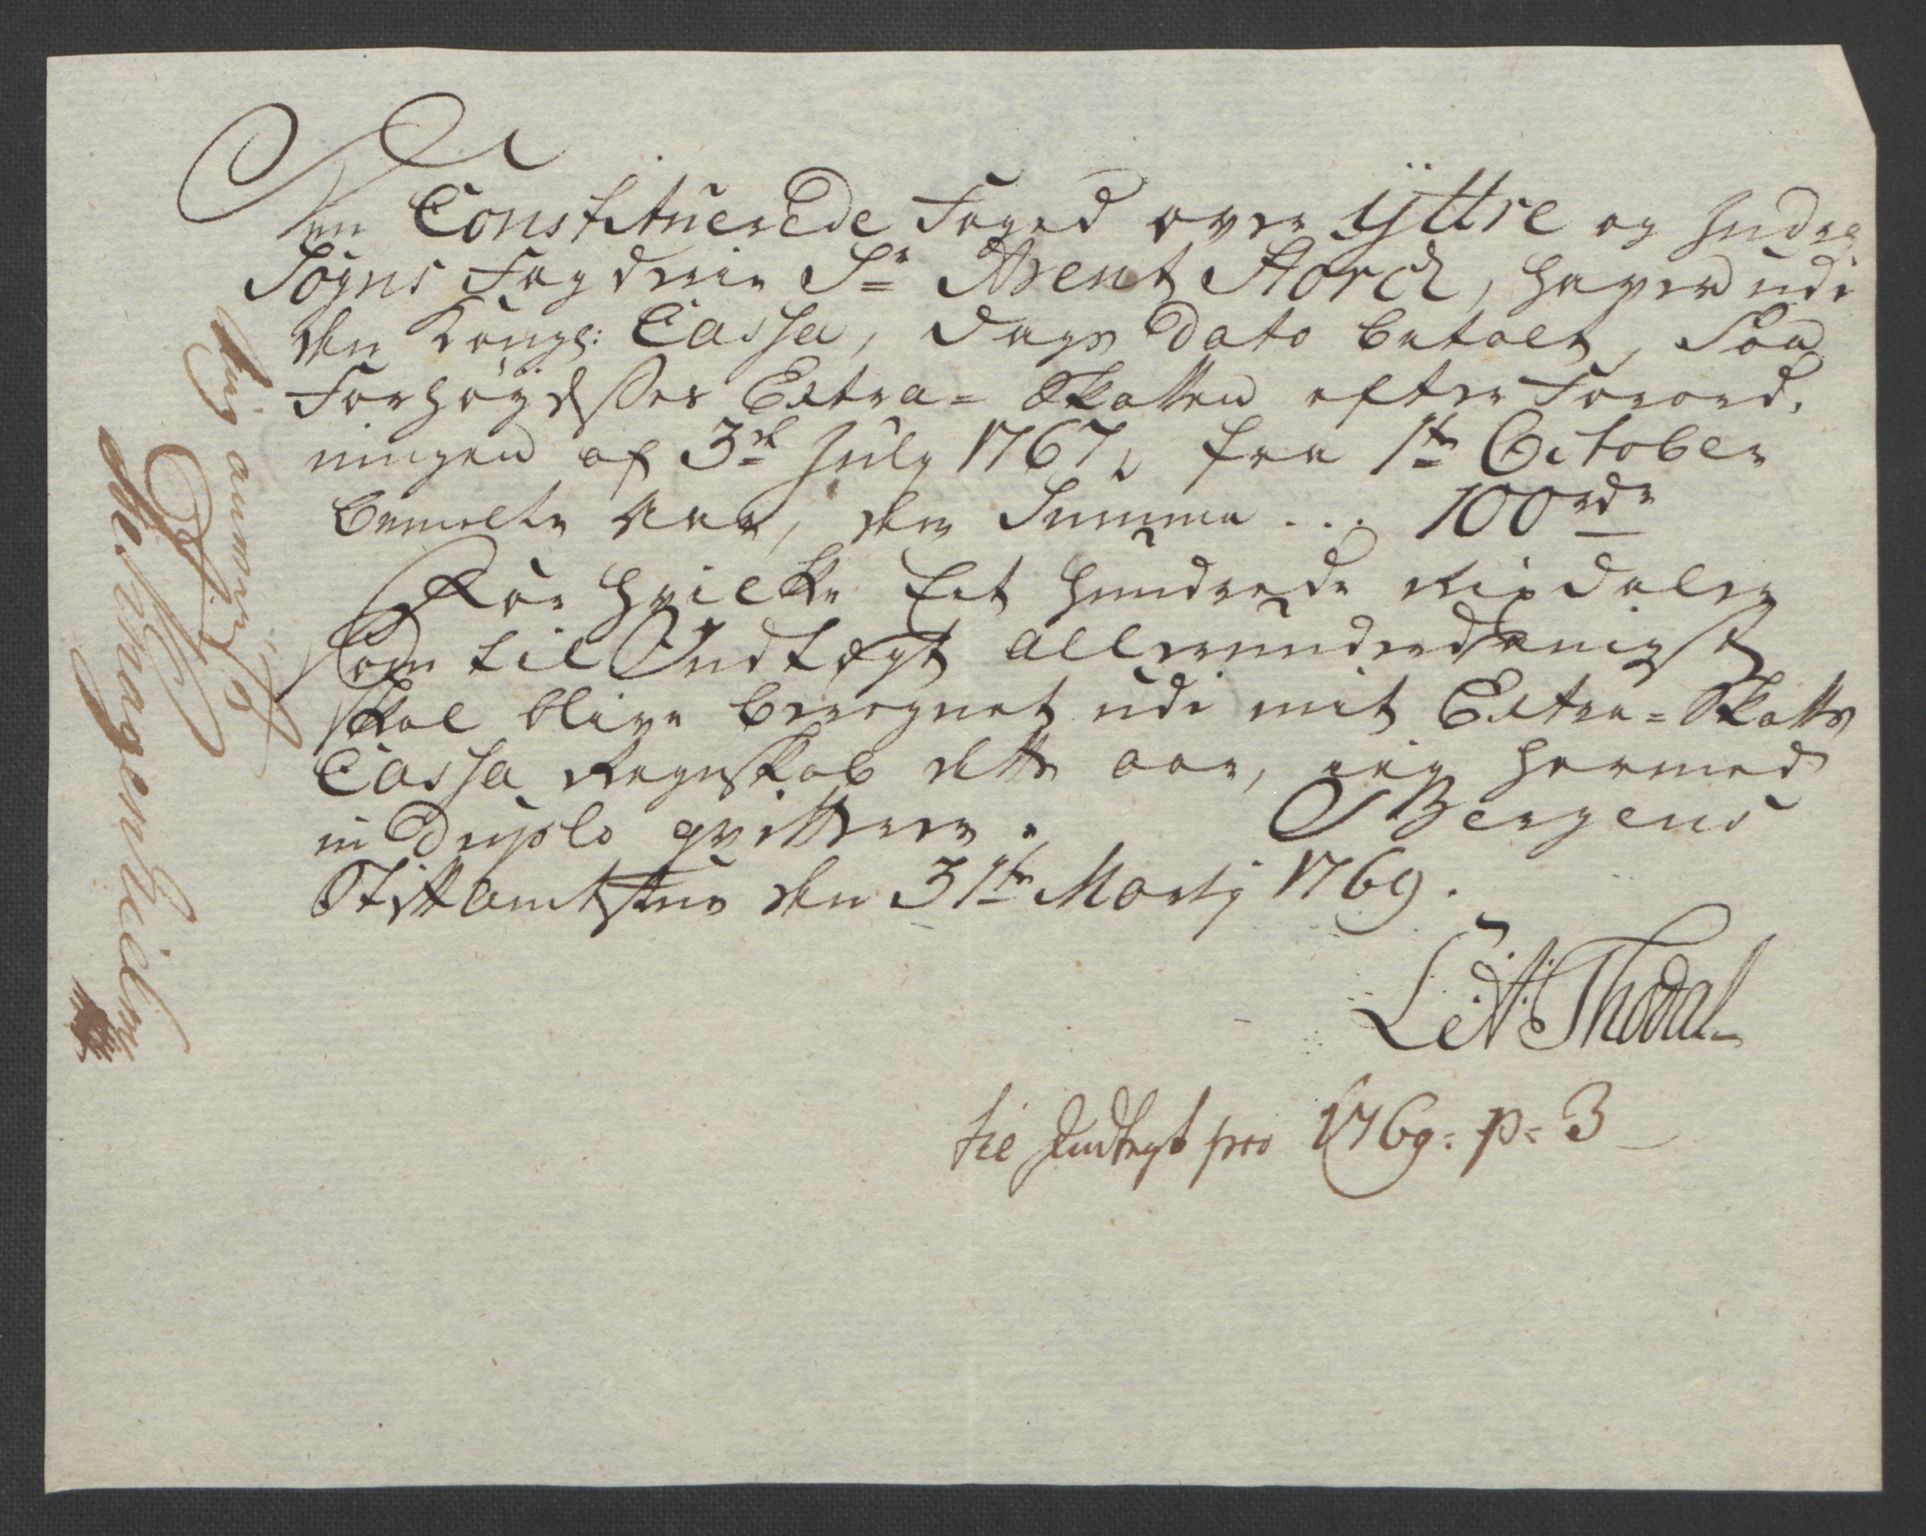 Den Constituerede Foged over ÿttre og Indre
Sogns Fogderie Sr Arent Storch, haver udi
den Kongl: Cassa, Dags Dato betalt, Paa
Forhøydelses Extra-Skatten efter Forord,
ningen af 3de July 1767, fra 1te October
bemelte Aar, den Summa ... 100rdr
For hvilke Eet Hundrede Rixdaler
som til Indtægt allerunderdanigst
skal blive beregnet udi mit Extra-Skatts
Cassa Regnskab dette aar, ieg hermed
in Duplo qvitterer. Bergens
Stiftamtstue den 31te Martij 1769.
L: A: Thodal
til Indtegt pro 1769. p. 3